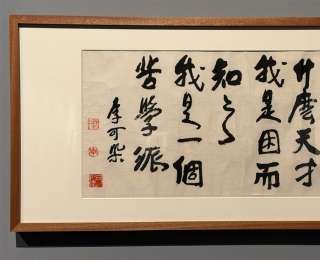 什麼天才
我是困而
知之
我是一個
苦學派
李可染